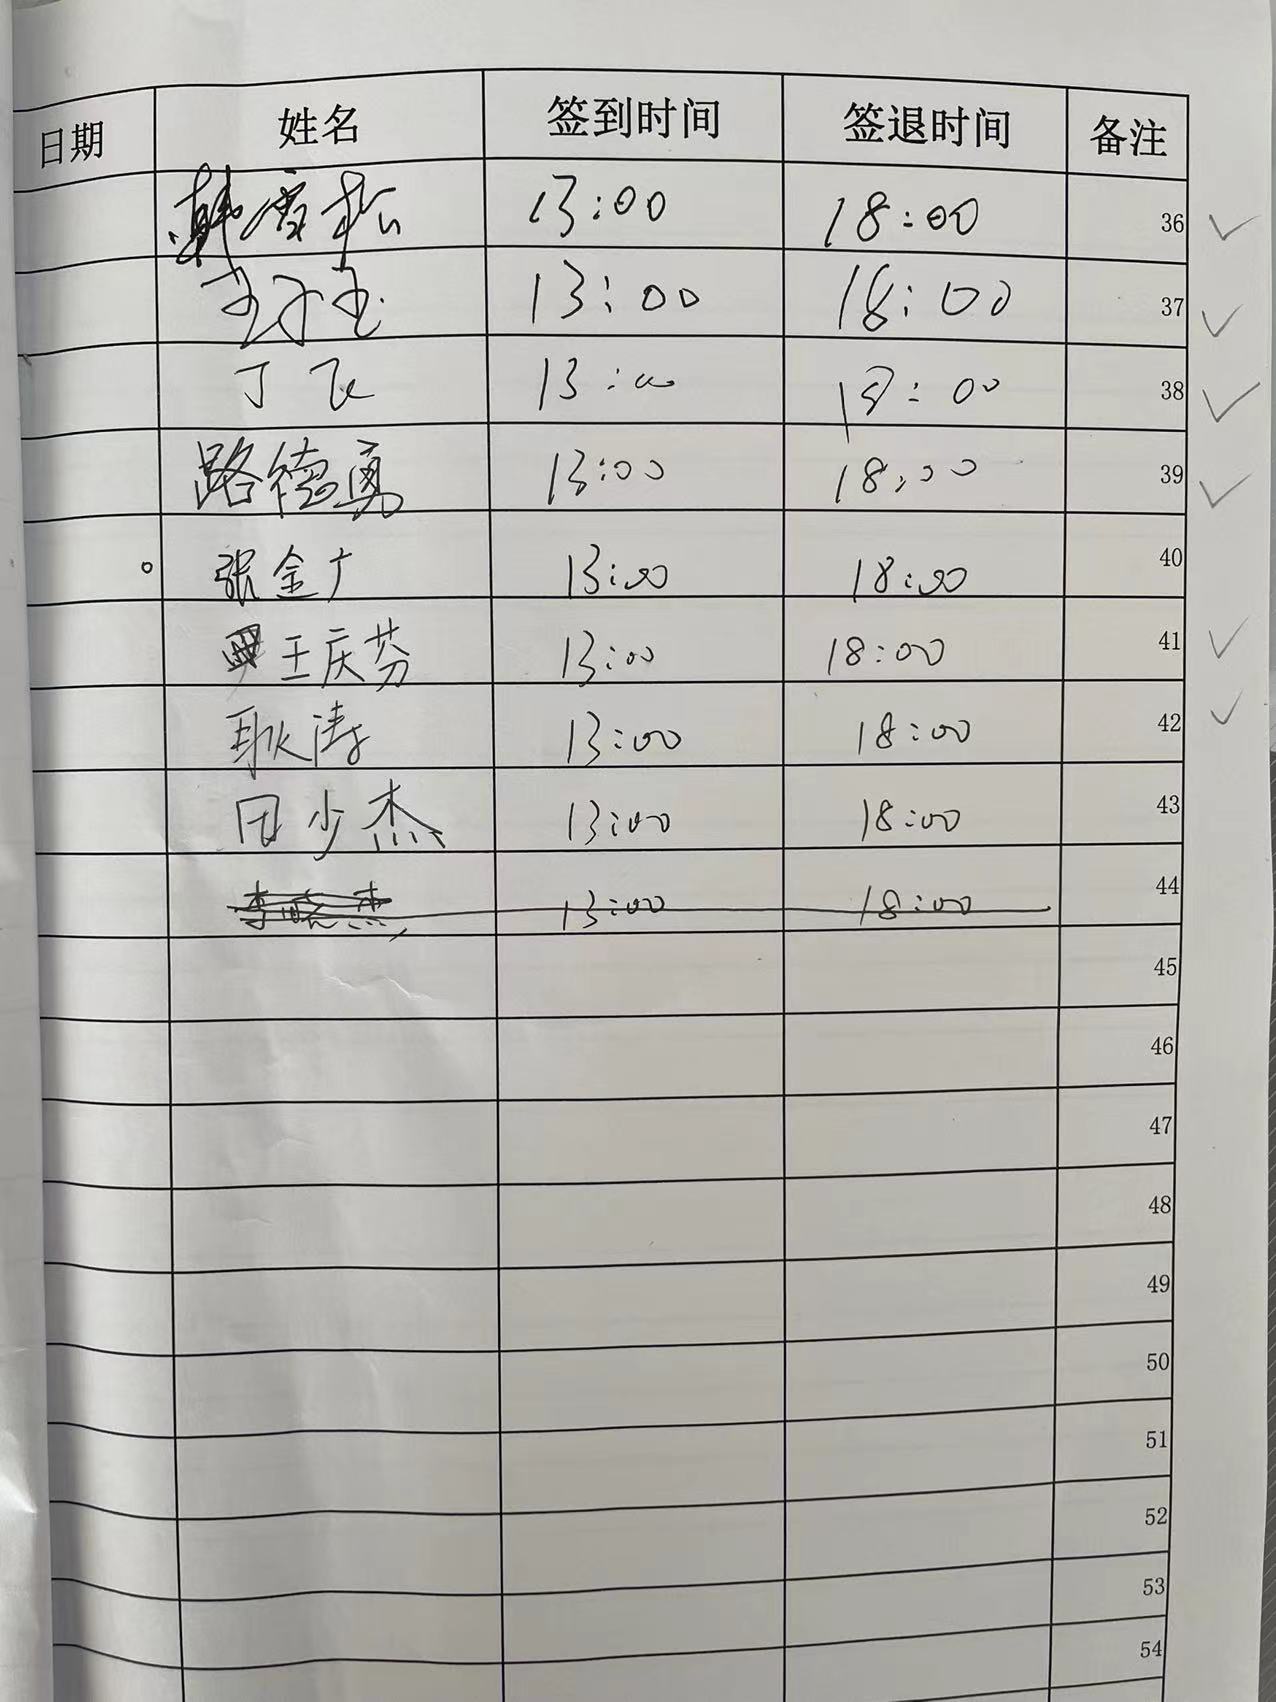 日期 姓名 签到时间 签退时间 备注
韩雪松 13:00 18:00 36
13:00 18:00 37
丁飞 13:00 18:00 38
路德勇 13:00 18:00 39
张金广 13:00 18:00 40
王庆芬 13:00 18:00 41
耿涛 13:00 18:00 42
田少杰 13:00 18:00 43
李晓杰 13:00 18:00 44
45
46
47
48
49
50
51
52
53
54